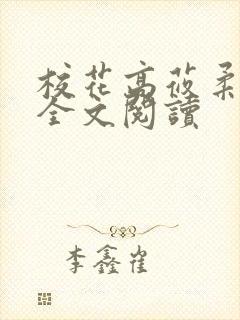 校花高莜柔
全文閱讀
李鑫崔